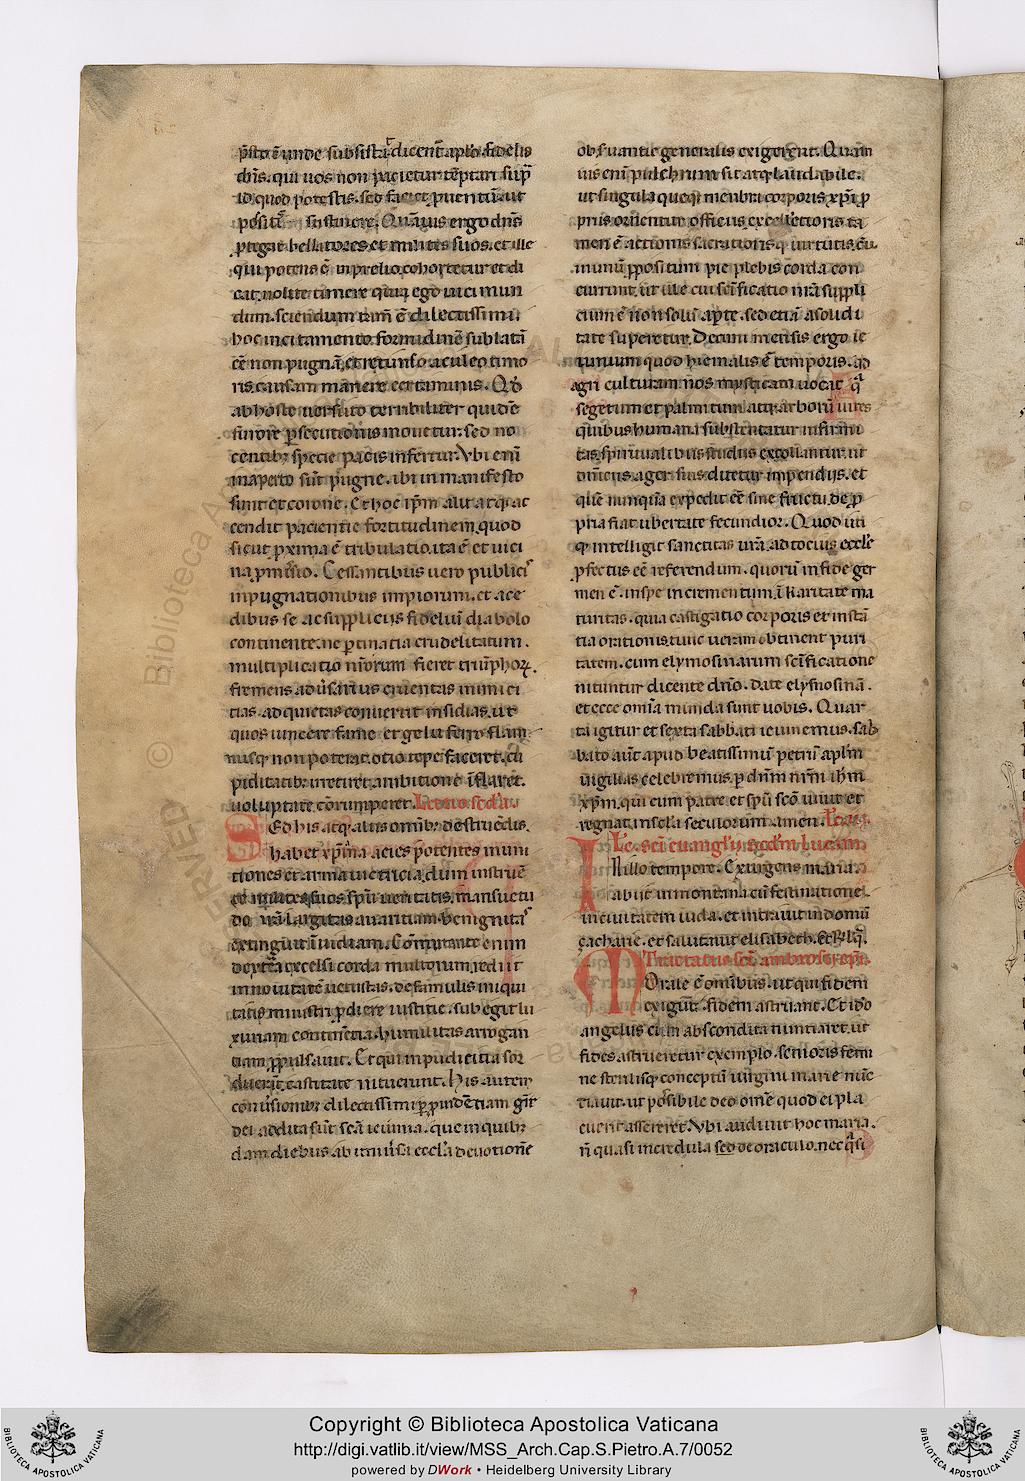 p̄sto ē unde subsistat dicent̄ apl̄o. fidelis
dn̄s. qui uos non pacietur tēptari sup̄
id quod potestis. sed faciet
Quāuis ergo dn̄s
ꝓtegat bellatores et milites suos. et ille
qui potens ē in prelio cohortetur et di
cat. nolite timere quia ego uici mun
dum. sciendum tam̄ ē dilectissimi
hoc incitamento formidinē sublatā
ēē non pugnā, et retunso aculeo timo
ris. causam manere certaminis. Q̄
ab hoste uersuto terribiliter quidē
furore ꝑsecutionis mouetur. sed no
centiꝰ specie pacis infertur. Vbi enī
in aperto sūt pugne. ibi in manifesto
sunt et corone. Et hoc ip̄m alit atq; ac
cendit pacientie fortitudinem. quod
sicut ꝓxima ē tribulatio. ita ē et uici
na ꝓmissio. Cessantibus uero publicis
inpugnationibus impiorum. et a ce
dibus se ac suppliciis fidelium diabolo
continente. ne ꝑtinatia crudelitatum.
multiplicatio nr̄orum fieret triumphoꝝ.
fremens aduersarius cruentas inimici
tias. ad quietas conuertit insidias. ut
quos uincere fame et gelu ferro flam
misq; non poterat. otio tepefaceret. cu
piditatibꝫ irretiret. ambitione īflaret.
uoluptate cōrumperet. Lectio scd̄a.
Sed his. atq; aliis omībꝫ destruēdis.
habet xp̄iana acies potentes muni
tiones et arma uictricia. dum instruē
te milites suos sp̄u ueritatis. mansuetu
do irā. largitas auaritiam. benignitas
extinguit īuidiam. Cōmutante enim
dextera excelsi corda multorum. rediit
in nouitatē uetustas. de famulis iniqui
tatis ministri ꝓdiere iustitie. subegit lu
xuriam continētia. humilitas arrogan
tiam ꝓpulsauit. Et qui inpudicitia sor
duerūt. castitate nituerunt. His autem
conuersionibꝫ dilectissimi ꝑ ꝓuidētiam gr̄e
dei addita sūt sc̄a ieiunia. que in quibꝫ
dam diebus ab uniuersa eccl̄a deuotionē
obseruantie generalis exigerent. Quam
uis enī pulchrum sit atq; laudabile.
ut singula queq; menbri corporis xp̄i ꝓ
priis orнentur officiis excellētioris ta
men ē actionis sacratiorisq; uirtutis. cū
in unū ꝓpositum pie plebis corda con
currunt. ut ille cui sc̄ificatio nr̄a suppli
cium ē non solū a ꝑte. sed etiā a solidi
tate superetur. Decimi mensis ergo ie
iunium quod hiemalis ē temporis. ad
agriculturam nos mysticam uocat q̄
segetum et palmitum atq; arborū uires
quibus humana substentatur infirmi
tas. spiritualibus studiis excolantur. ut
dominicus ager suis ditetur impendiis. et
que nunquā expedit ēē sine fructu. de ꝓ
pria fiat ubertate fecundior. Quod uti
q; intelligit sanctitas ur̄a. ad tocius eccl̄e
ꝓfectus ēē referendum. quorū in fide ger
men ē. in spe incrementum. ī karitate ma
turitas. quia castigatio corporis et instā
tia orationis. tunc ueram obtinent puri
tatem. cum elymosinarum sc̄ificatione
nituntur dicente dn̄o. Date elymosinā.
et ecce omīa munda sunt uobis. Quar
ta igitur et sexta sabbati ieiunemus. sab
bato aūt apud beatissimū petrū apl̄m
uigilias celebremus. ꝑ dn̄m nr̄m ih̄m
xp̄m. qui cum patre et sp̄u sc̄o uiuit et
regnat in scl̄a seculorum amen.
Lc̄. sc̄i euangl̄ii. scd̄m lucam
In illo tempore. Exurgens maria.
abiit in montana cū festinatione
in ciuitatem iuda. et intrauit in domū
çacharie. et salutauit elisabeth. Et Rl̄q̄.
Tractatus sc̄i ambrosi. ep̄i.
Morale ē omībus. ut qui fidem
exigūt. fidem astruant. Et ido
angelus cum abscondita nuntiaret. ut
fides astrueretur exemplo. senioris femi
ne sterilisq; conceptū uirgini marie nūc
tiauit. ut possibile deo omē quod ei pla
cuerit assereret. Vbi audiuit hoc maria.
n̄ quasi incredula sed de oraculo. nec q̄si
Copyright © Biblioteca Apostolica Vaticana
http://digi.vatlib.it/view/MSS_Arch.Cap.S.Pietro.A.7/0052
powered by DWork • Heidelberg University Library
BIBLIOTECA APOSTOLICA VATICANA
BIBLIOTECA APOSTOLICA VATICANA